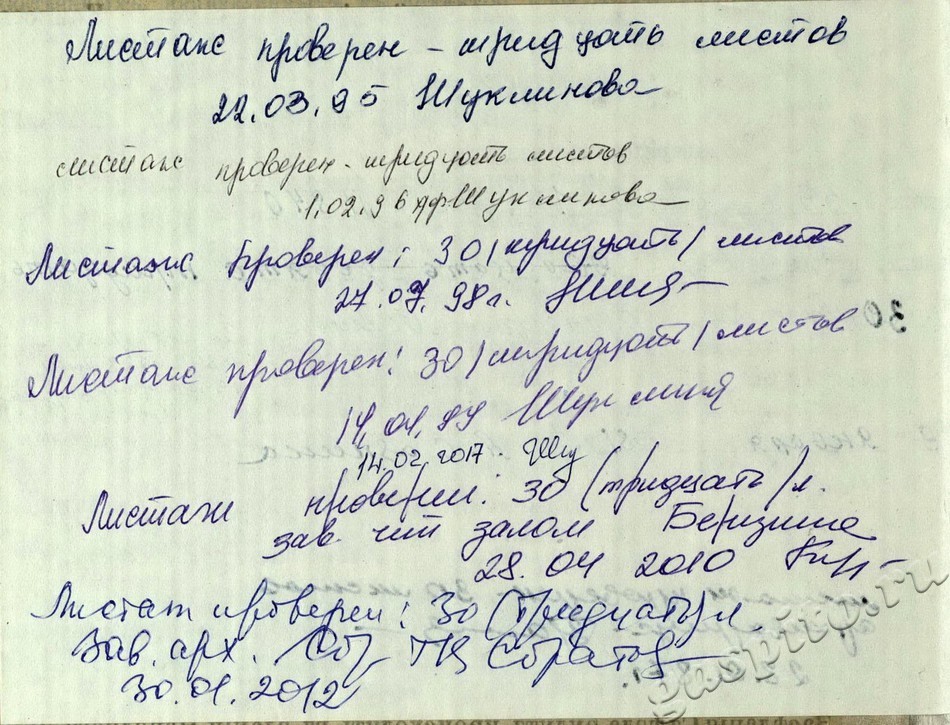 Листаж проверен – тридцать листов
22.03.95 Шуклинова
листаж проверен – тридцать листов
1.02.96 Шуклинова
Листаж проверен: 30 /тридцать/ листов
27.07.98г.
Листаж проверен: 30 /тридцать/ листов
14.01.99
14.02.2017.
Листаж проверен: 30 (тридцать) л.
зав. чит залом
28.04 2010
Листаж проверен: 30 (Тридцать) л.
Зав. арх.
30.01.2012
30